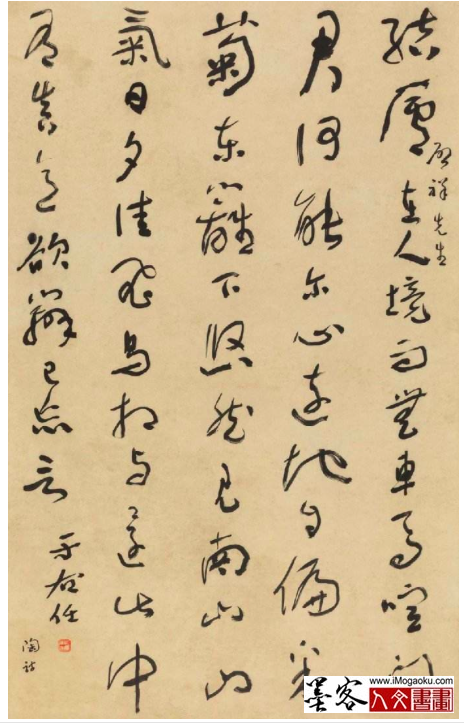 結廬在人境而無車馬喧問
祥先生
君何能爾心遠地自偏采
菊東籬下悠然見南山山
氣日夕佳飛鳥相與還此中
有真意欲辯已忘言
于右任
陶詩
www.iMogaoku.com
墨客人文書畫